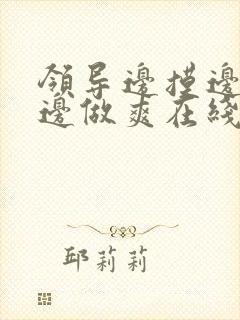 領导邊摸邊
邊做爽在綫
邱莉莉